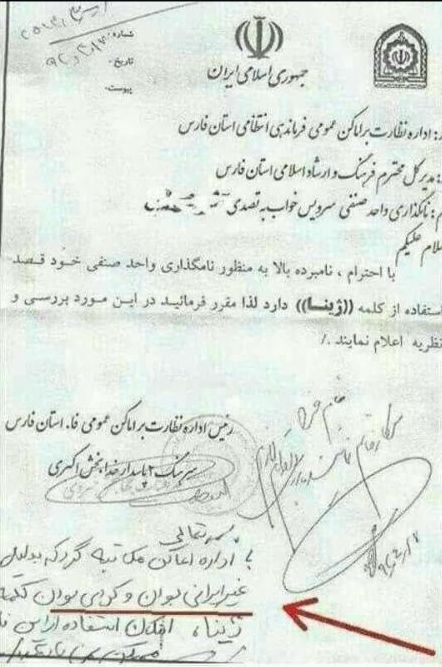 شماره:
تاریخ:
پیوست:
جمهوری اسلامی ایران
: اداره نظارت بر اماکن عمومی فرماندهی انتظامی استان فارس
: مدیر کل محترم فرهنگ و ارشاد اسلامی استان فارس
: نامگذاری واحد صنفی سرویس خواب به تصدی
لام علیکم
با احترام ، نامبرده بالا به منظور نامگذاری واحد صنفی خود قصد
استفاده از کلمه ((ژینا)) دارد لذا مقرر فرمائید در این مورد بررسی و
نظریه اعلام نمایند ./
رئیس اداره نظارت بر اماکن عمومی فا. استان فارس
سرهنگ ۲ پاسدار خدابخش اکبری
بسمه تعالی
با اداره اماکن مکاتبه گردد که بدلیل
غیر ایرانی بودن و کردی بودن کلمه
ژینا، امکان استفاده از این